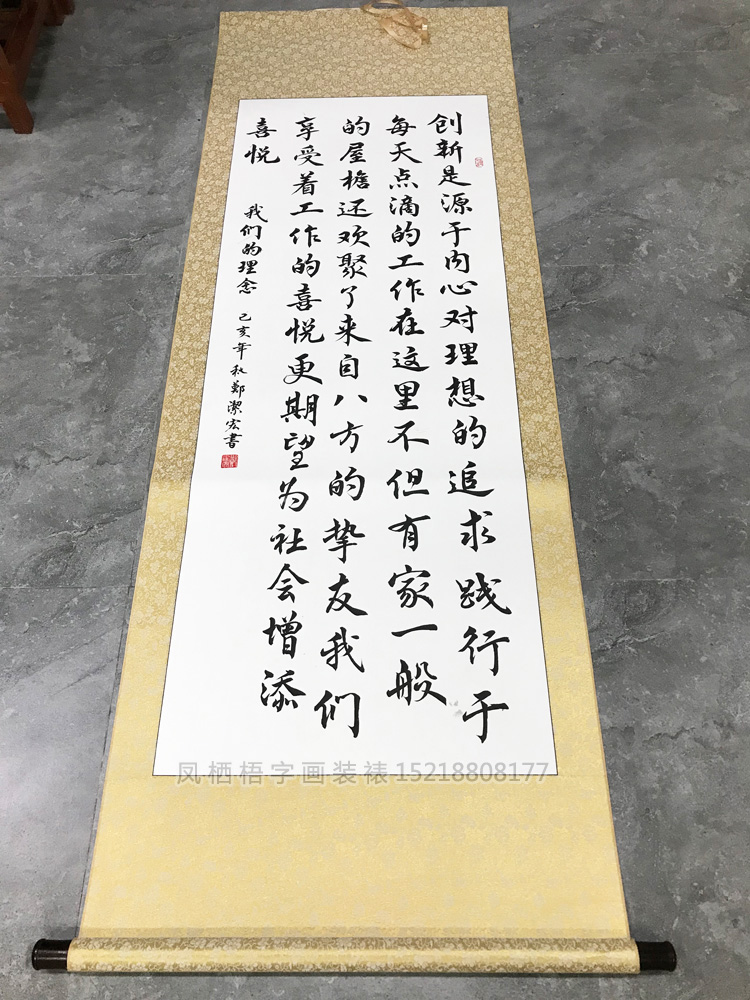 创新是源于内心对理想的追求践行于
每天点滴的工作在这里不但有家一般
的屋檐还欢聚了来自八方的挚友我们
享受着工作的喜悦更期望为社会增添
喜悦
我们的理念 己亥年秋郑洁宏书
凤栖梧字画装裱15218808177